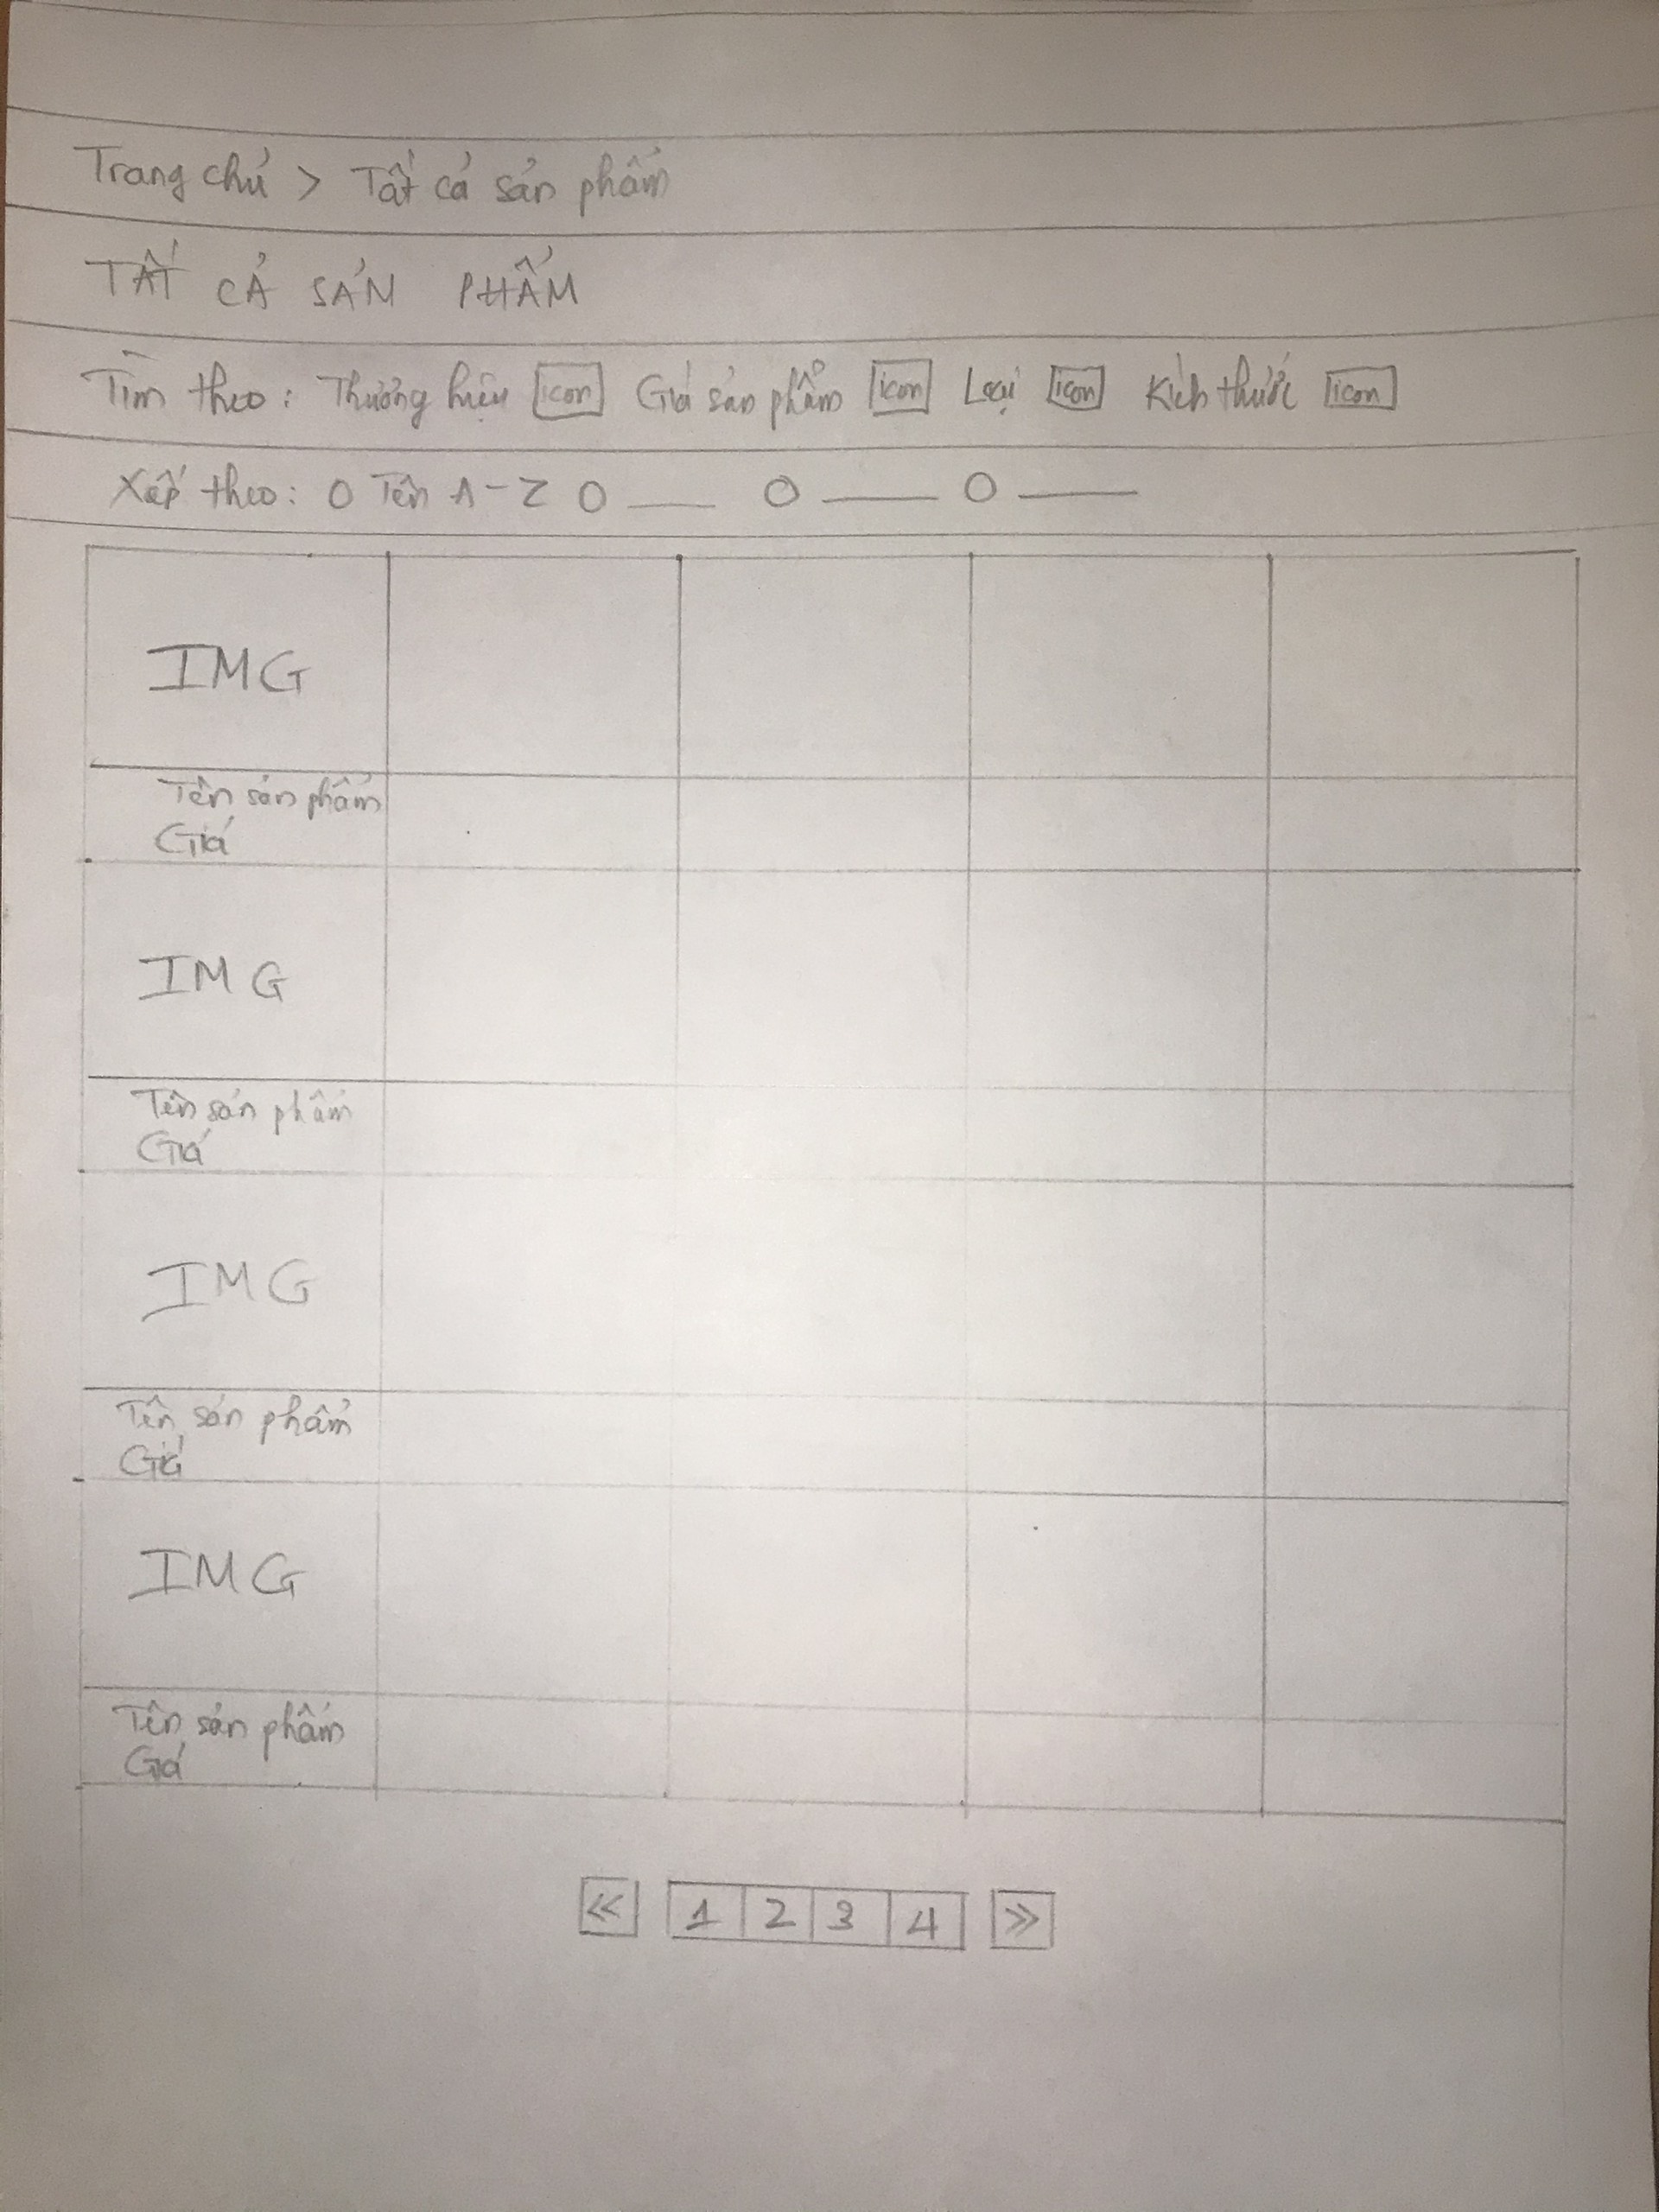 Trang chủ > Tất cả sản phẩm
TẤT CẢ SẢN PHẨM
Tìm theo: Thương hiệu icon Giá sản phẩm icon Loại icon Kích thước icon
Xếp theo: O Tên A-Z O ___ O ___ O ___
IMG
Tên sản phẩm
Giá
IMG
Tên sản phẩm
Giá
IMG
Tên sản phẩm
Giá
IMG
Tên sản phẩm
Giá
<< 1 2 3 4 >>